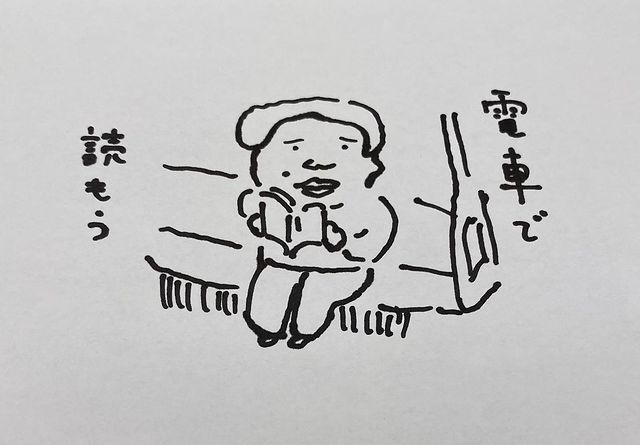 電車で
読もう